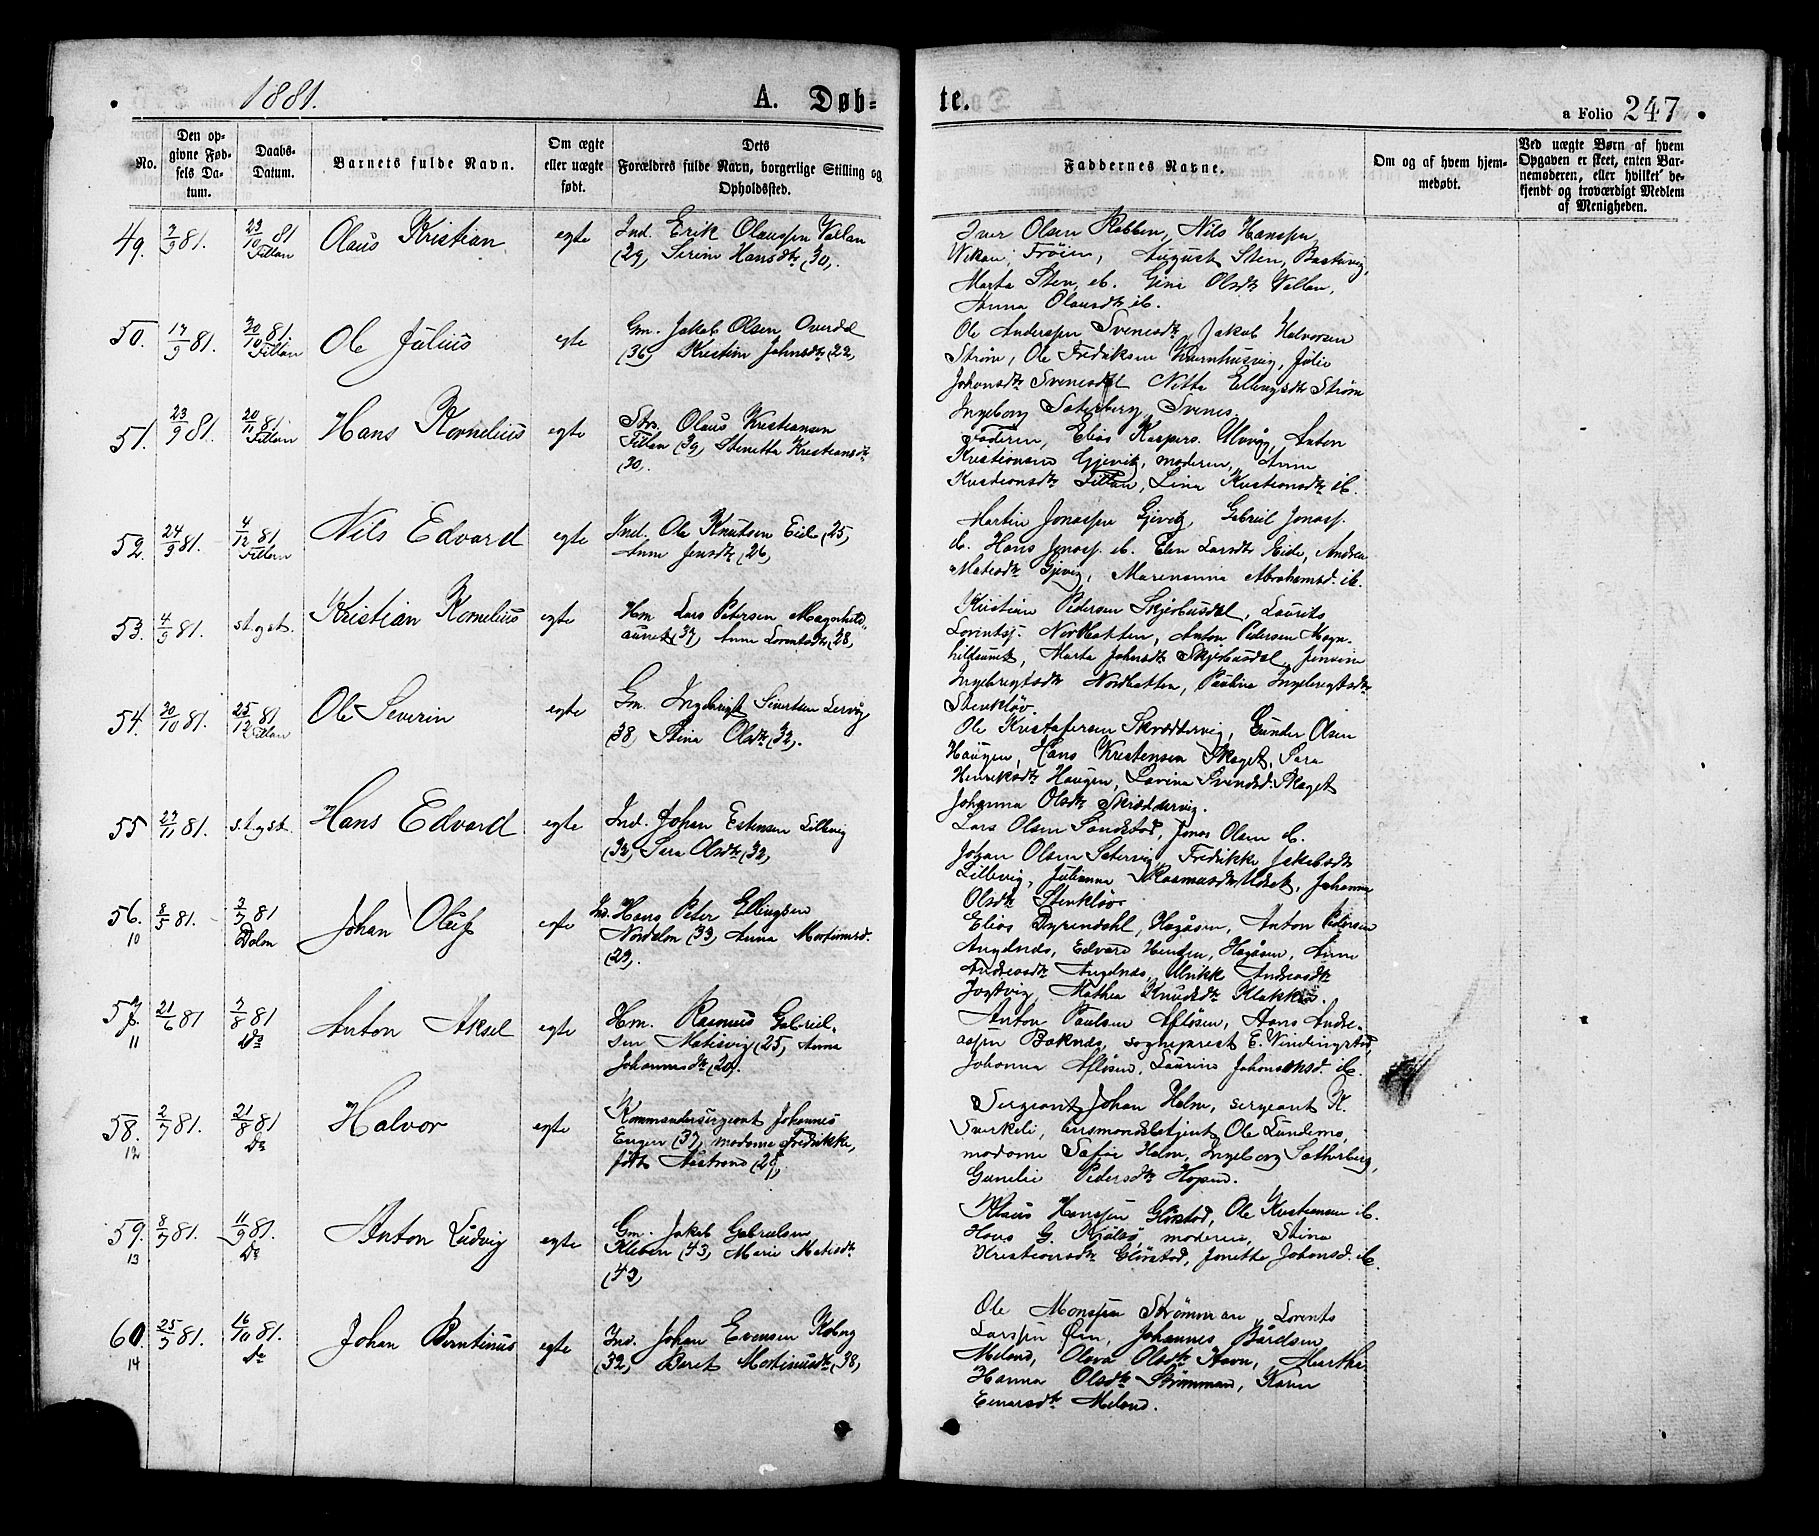 1881.
A. Døb-
te.
a Folio 247
No.
Den op-
givne Fød-
sels Da-
tum.
Daabs-
Datum.
Barnets fulde Navn.
Om ægte
eller uægte
født.
Dets
Forældres fulde Navn, borgerlige Stilling og
Opholdssted.
Faddernes Navne.
Om og af hvem hjem-
medøbt.
Ved uægte Børn af hvem
Opgaven er skeet, enten Bar-
nemoderen, eller hvilket be-
kjendt og troværdigt Medlem
af Menigheden.
49. 7/9 81. 23/10 81 Olaus Kristian egte Ind. Erik Olaussen Vallan
Fillan (29, Sirene Hansdtr (30,.
Iver Olsen Rabben, Nils Hanssen
Frøien, August Sten, Bastuvig,
Marta Sten, ib. Gine Olsdtr Vallan,
Anna Olausdtr ib.
50. 17/9 81. 30/10 81. Ole Julius egte Gm. Jakob Olsen Overdal
Fillan (36, Kristine Johnsdtr (22,
Ole Anderssen Jakob Halvorsen
Strøm, Ole Fredriksen Kurnhusvig, Julie
Johansdtr Nitta Ellingsdtr Strøm
Ingeborg Saterberg, Svenes.
51. 23/9 81. 20/11 81 Hans Kornelius egte Olaus Kristiansen
Fillan Fillan (39, Stenetta Kristiansdtr
(30,.
Faderen, Elias Kaspers. Ulvøy, Anton
Kristiansen Gjevik, moderen, Anne
Kristiansdtr Fillan, Lina Kristiansdtr ib.
52. 24/9 81. 4/12 81 Nils Edvard egte Ind. Ole Knutsen Eide (25,
Fillan Anne Jensdtr (26,
Martin Jonassen Gjevig, Gabriel Jonass.
ib. Hans Jonass. ib. Elen Larsdtr Eide, Andrea
Matisdtr Gjevig, Marenanna Abrahamsd. ib.
53. 4/9 81. st.gst. Kristian Kornelius egte Hm. Lars Petersen Magnhild-
aunet (37, Anne Lorentsdtr (28,
Kristian Pedersen Skjerbusdal, Laurits
Lorintsj. Nordbotten, Anton Pedersen Magn-
hildaunet, Marta Johnsdtr Skjerbusdal, Jensine
Ingebregtsdtr Nordbotten, Pauline Ingebregtsdtr
Stenkløv.
54. 30/10 81. 25/12 81 Ole Severin egte Gm. Ingebrigt Sivertsen Lervåg
Fillan (38, Stina Olsdtr (32,.
Ole Kristofersen Skreddervig, Gunder Olsen
Haugen, Hans Kristensen Skaget, Sara
Henriksdtr Haugen, Lavina Svendsd. Skaget
Johanna Olsdtr Skræddervig.
55 27/11 81. st.gst. Hans Edvard egte Ind. Johan Estensen Lillevig
(32, Sara Olsdtr (32,
Lars Olsen Sandstad, Jonas Olsen ib.
Johan Olsen Setervig, Fredrikke Jakobsdtr
Lillevig, Julianna Rasmusdtr Udset, Johanna
Olsdtr Stenkløv
56. 8/5 81. 3/7 81 Johan Oluf egte Ind. Hans Peter Ellingsen
10 Dolm Norddolm (33, Anna Mortinusd.
(23,.
Elias Dyrendahl, Hagåsen, Anton Pedersen
Angdnæs, Edvard Hagåsen, Anne
Andreasdtr Angdnæs, Ulrikke Andreasdtr
Jøstvig, Mathea Knudsdtr Klakken.
57. 21/6 81 7/8 81 Anton Aksel egte Hm. Rasmus Gabriel-
11 Do sen Matisvig (25, Anna
Johannesdtr (20,.
Anton Paulsen Afløsen, Hans Andre-
assen Baknæs, sogneprest E. Vindingstad,
Johanna Afløsen, Laurine Johannesd. ib.
58. 2/7 81. 21/8 81 Halvor egte Kommandersergeant Johannes
12 Do Enger (37, madame Fredrikke,
født Nastrand (28,
Sergeant Johan Holm, sergeant K.
Sverkeli, lensmandsbetjent Ole Lundemo,
madame Sofie Holm, Ingeborg Sætherberg,
Gunelie Pedersdtr Hopsen.
59. 8/7 81. 11/9 81. Anton Ludvig egte Gm. Jakob Gabrielsen
13 Do Kleben (43, Marie Matisdtr
(43,
Klaus Hanssen Glørstad, Ole Kristiansen ib.
Hans G. Kjølsø, moderen, Stina
Kristiansdtr Glørstad, Jonetta Johansd. ib.
60. 25/7 81. 16/10 81. Johan Berntinus egte Ind. Johan Evensen Kobvig
14 Do (32, Beret Mortinusdtr (38,
Ole Monssen Strømman, Lorents
Larssen Øien, Johannes Bårdsen
Meland, Olava Olsdtr Havn, Martha
Hanna Olsdtr Strømman, Karen
Einarsdtr Meland.